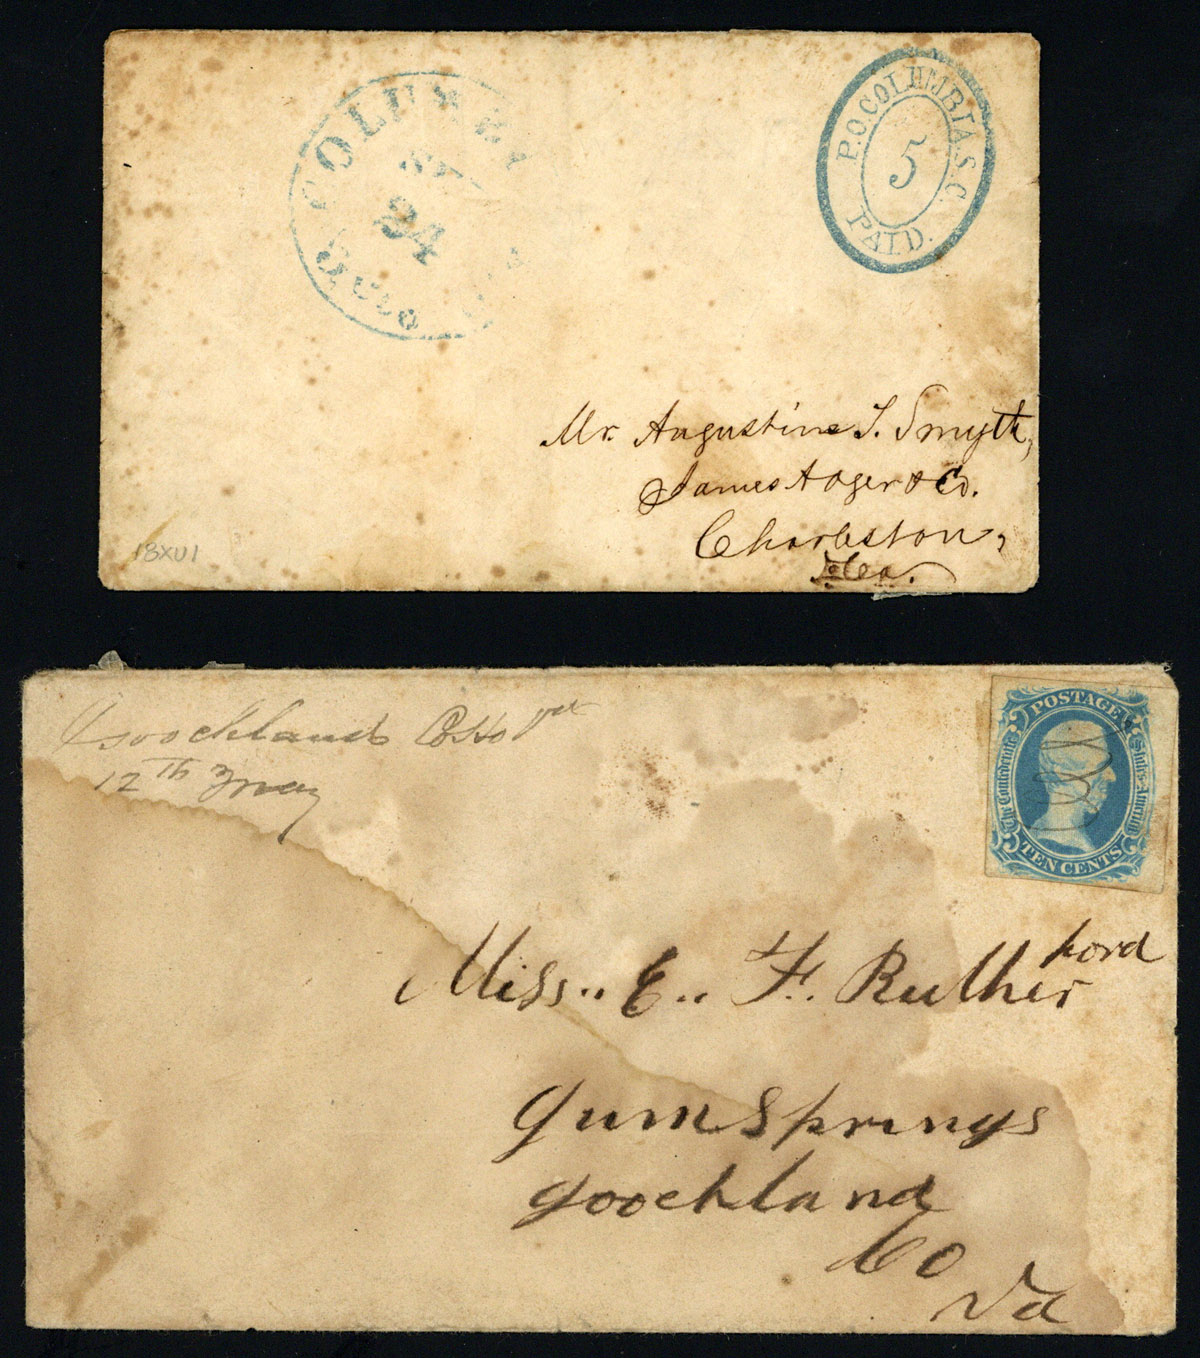 COLUMBIA
24
S.C.
P.O. COLUMBIA. S. C.
5
PAID.
Mr. Augustine T. Smyth,
James Adger & Co.
Charleston,
So. Ca.
18XU1
Goochland
12th May
POSTAGE
The Confederate States of America
TEN CENTS
Miss.. E.. F. Rutherford
Gum Springs
Goochland
Co
Va